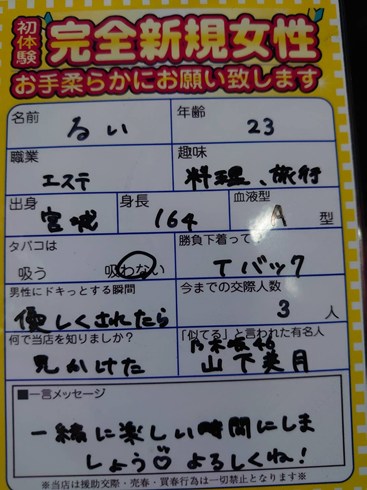 初体験
完全新規女性
お手柔らかにお願い致します
名前 るい 年齢 23
職業 エステ 趣味 料理、旅行
出身 宮城 身長 164 血液型 A 型
タバコは 吸う 吸わない 勝負下着って? Tバック
男性にドキっとする瞬間 優しくされたら 今までの交際人数 3 人
何で当店を知りましたか? 見かけた 「似てる」と言われた有名人 乃木坂46
山下美月
■一言メッセージ
一緒に楽しい時間にしま
しょう♡ よろしくね!
※当店は援助交際・売春・買春行為は一切禁止となります※